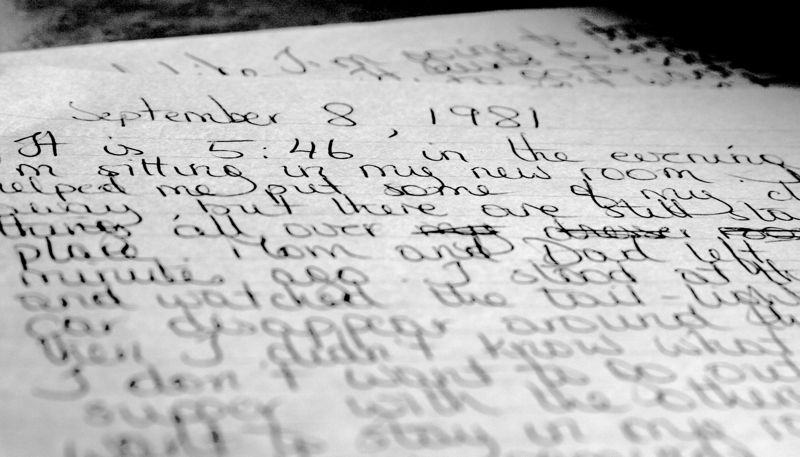 September 8, 1981
It is 5:46 in the evening
m sitting in my new room.
elped me put some of my cl
away but there are still sta
things all over
place. Mom and Dad left
minutes ago. I stood at th
and watched the tail-light
car disappear around th
then I didn't know what
I don't want to go out
supper with the other
want to stay in my r